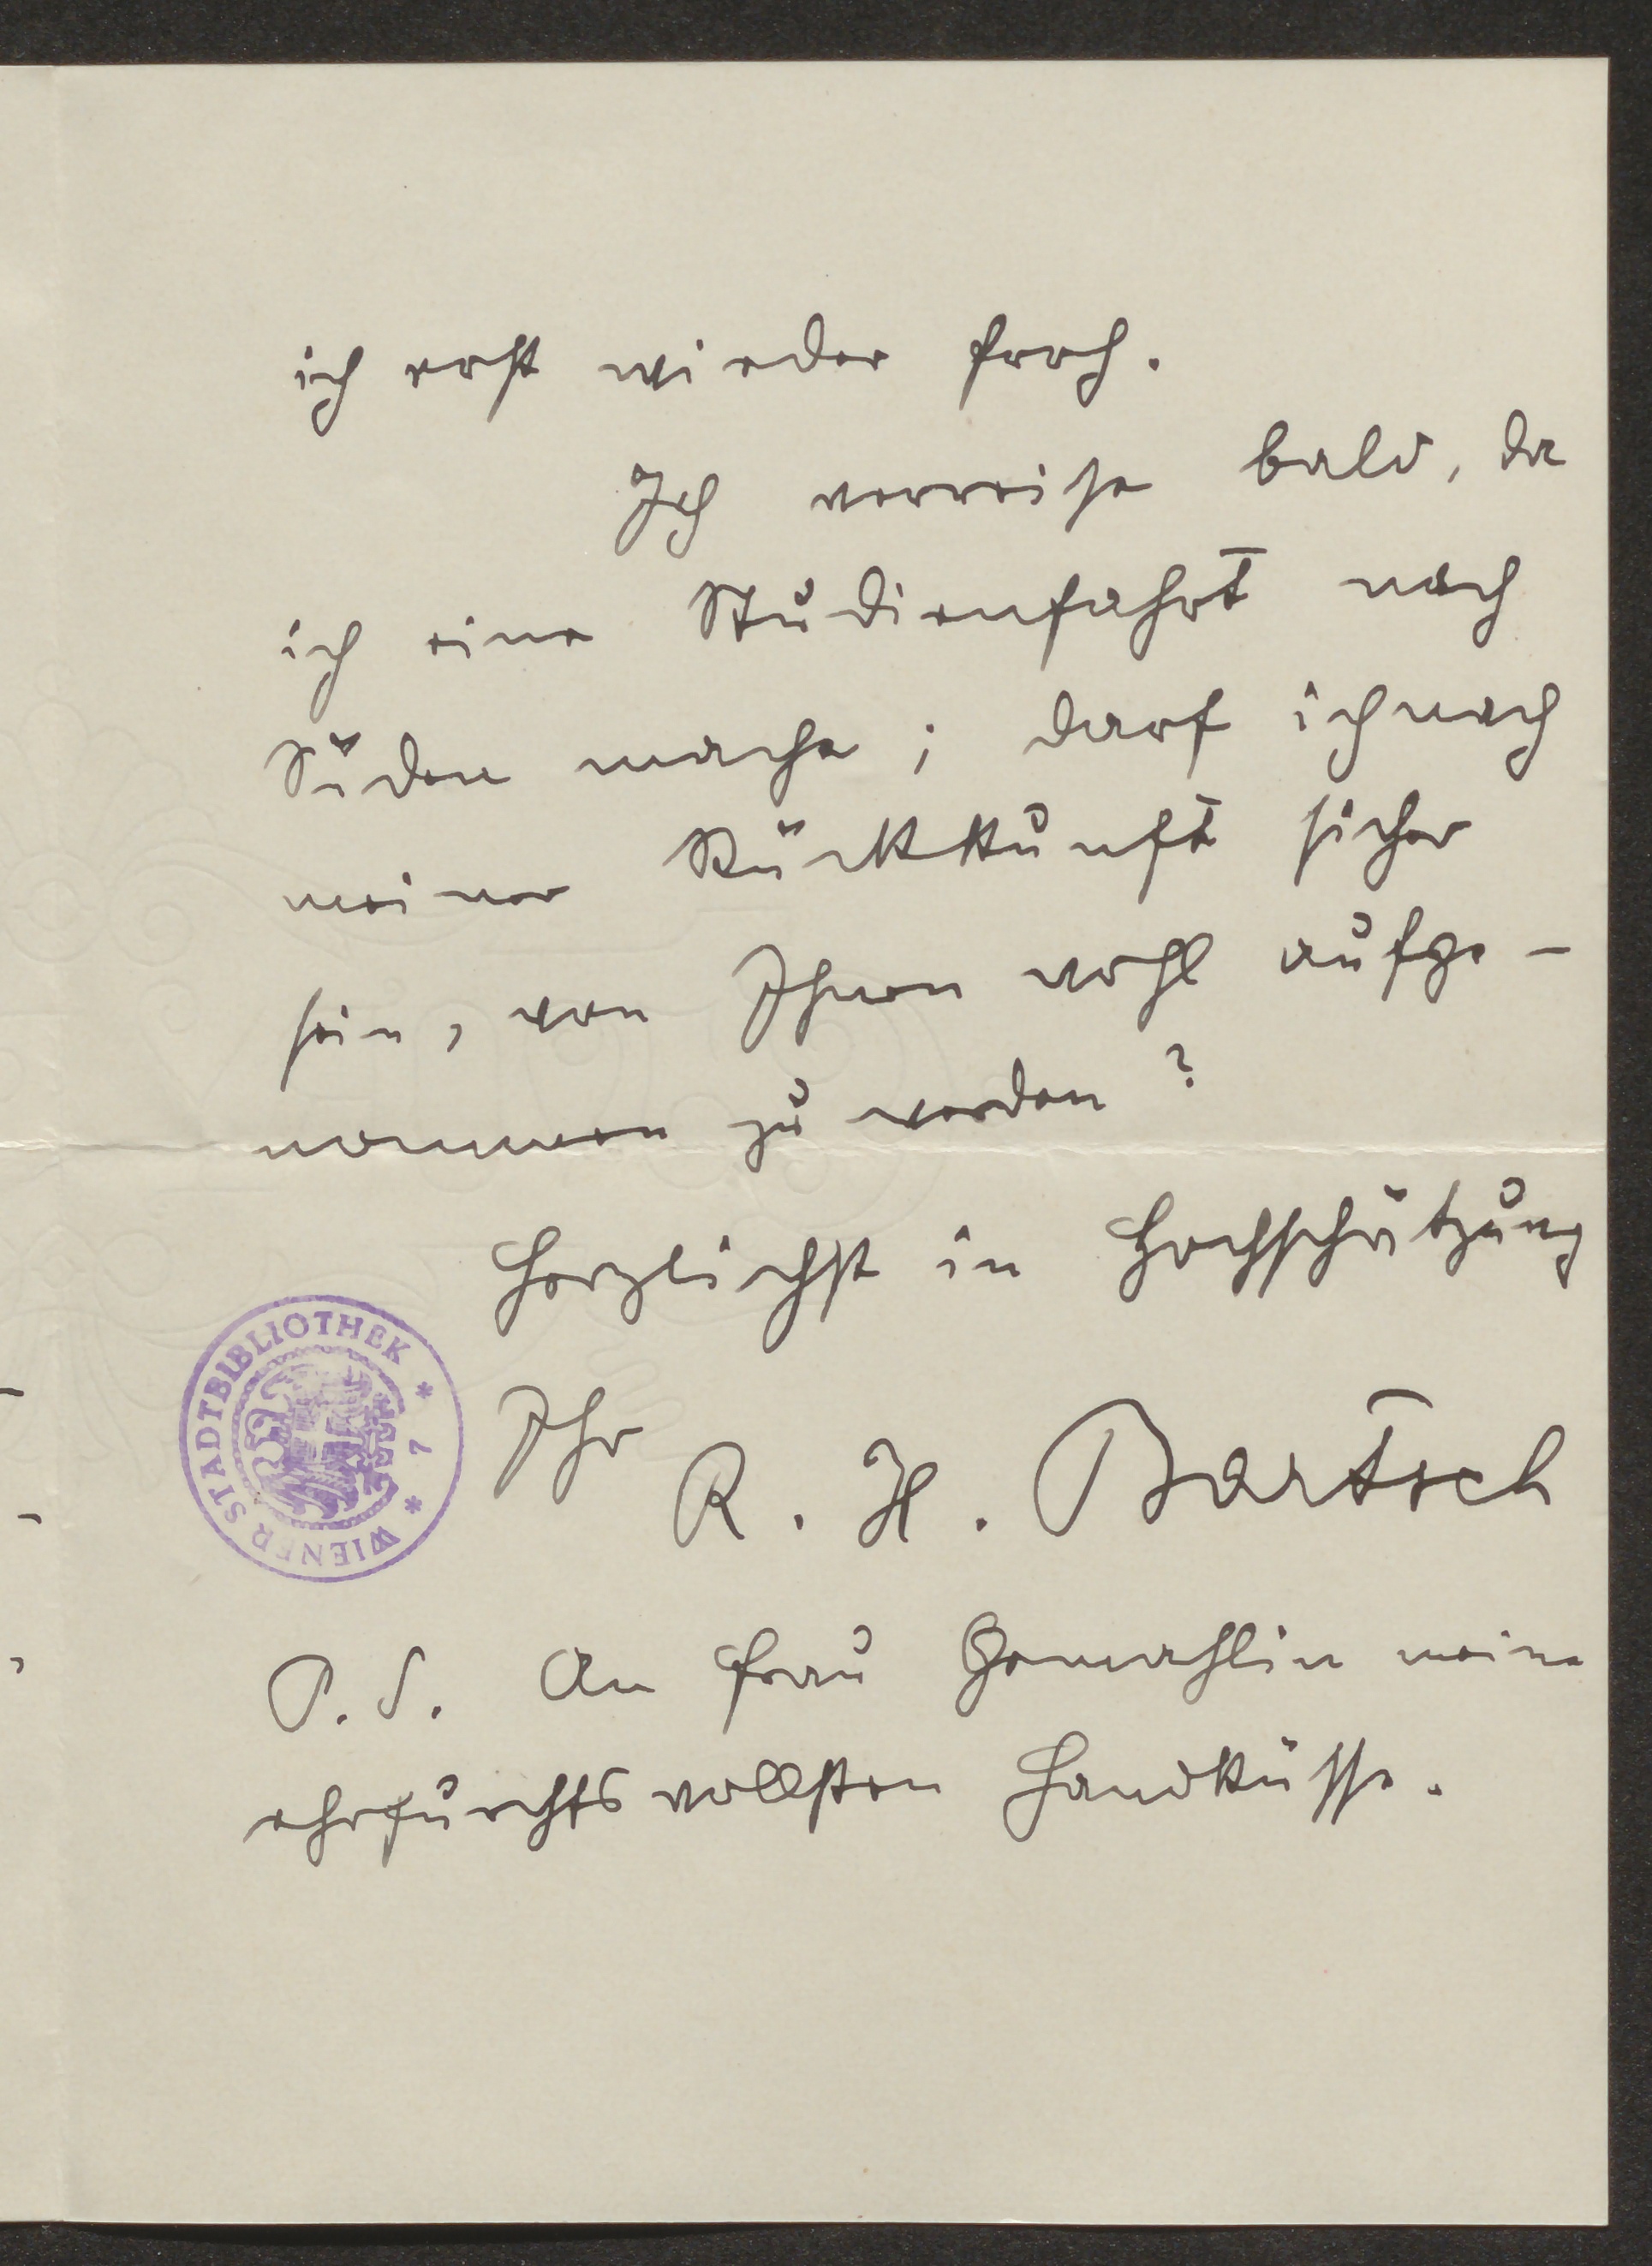 ich erst wieder froh.
Ich verreise bald, da
ich eine Studienfahrt nach
Süden mache; darf ich nach
meiner Rückkunft sicher
sein, von Ihnen wohl aufge-
nommen zu werden?
Herzlichst in Hochschätzung
Ihr
R. H. Bartsch
WIENER STADTBIBLIOTHEK * 7 *
P. S. An Frau Gemahlin meine
ehrfurchtsvollsten Handküsse.